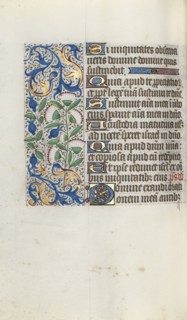 Si iniquitates observa
veris domine domine quis
sustinebit
Quia apud te propitiatio
est et propter legem tuam sustinui te dñe
Sustinuit aīa mea ī verbo
eius speravit aīa mea in dño
A custodia matutina usq
ad noctē speret israel in dño
Quia apud dñm mīa
et copiosa apud eū redēptio
Et ipse redimet isrl ex oī
bus iniquitatib eius
Domine exaudi oratio
nem meā aurib